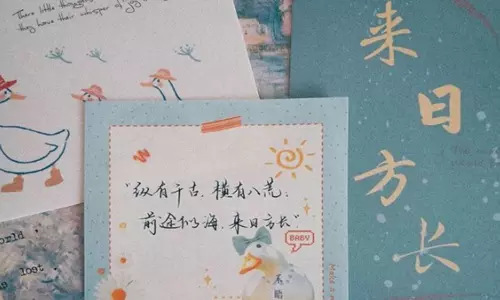 There little thoughts
they have their whisper of joy
来日方长
"纵有千古，横有八荒；
前途似海，来日方长"
BABY
world.
lost